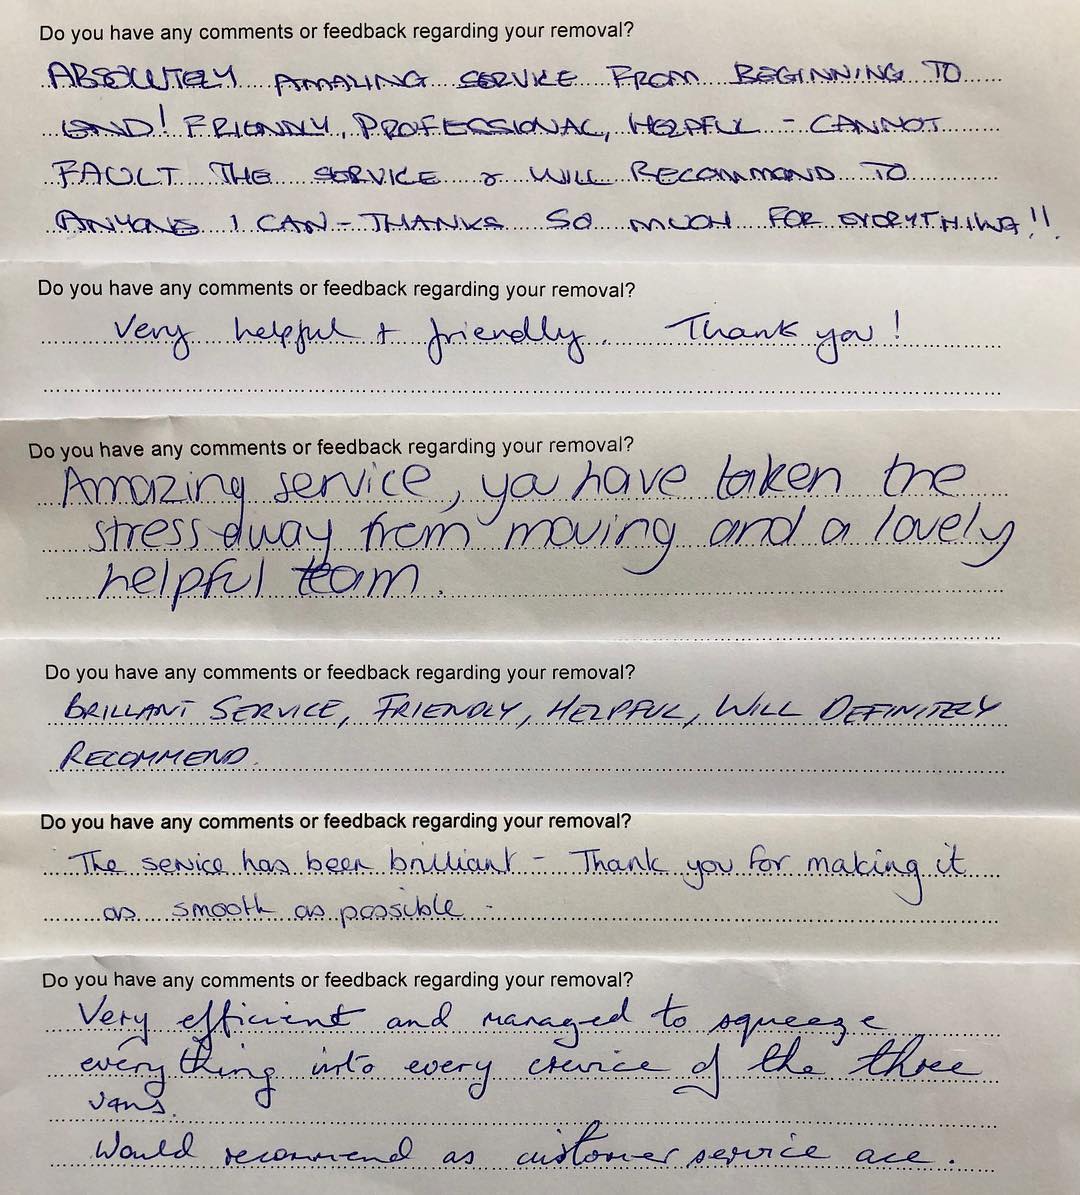 Do you have any comments or feedback regarding your removal?
ABSOLUTELY AMAZING SERVICE FROM BEGINNING TO
END! FRIENDLY, PROFESSIONAL, HELPFUL - CANNOT
FAULT THE SERVICE & WILL RECOMMEND TO
ANYONE I CAN - THANKS SO MUCH FOR EVERYTHING!!
Do you have any comments or feedback regarding your removal?
Very helpful + friendly. Thank you!
Do you have any comments or feedback regarding your removal?
Amazing service, you have taken the
stress away from moving and a lovely
helpful team.
Do you have any comments or feedback regarding your removal?
BRILLANT SERVICE, FRIENDLY, HELPFUL, WILL DEFINITELY
RECOMMEND.
Do you have any comments or feedback regarding your removal?
The service has been brilliant - Thank you for making it
as smooth as possible -
Do you have any comments or feedback regarding your removal?
Very efficient and managed to squeeze
everything into every crevice of the three
vans.
Would recommend as customer service ace.